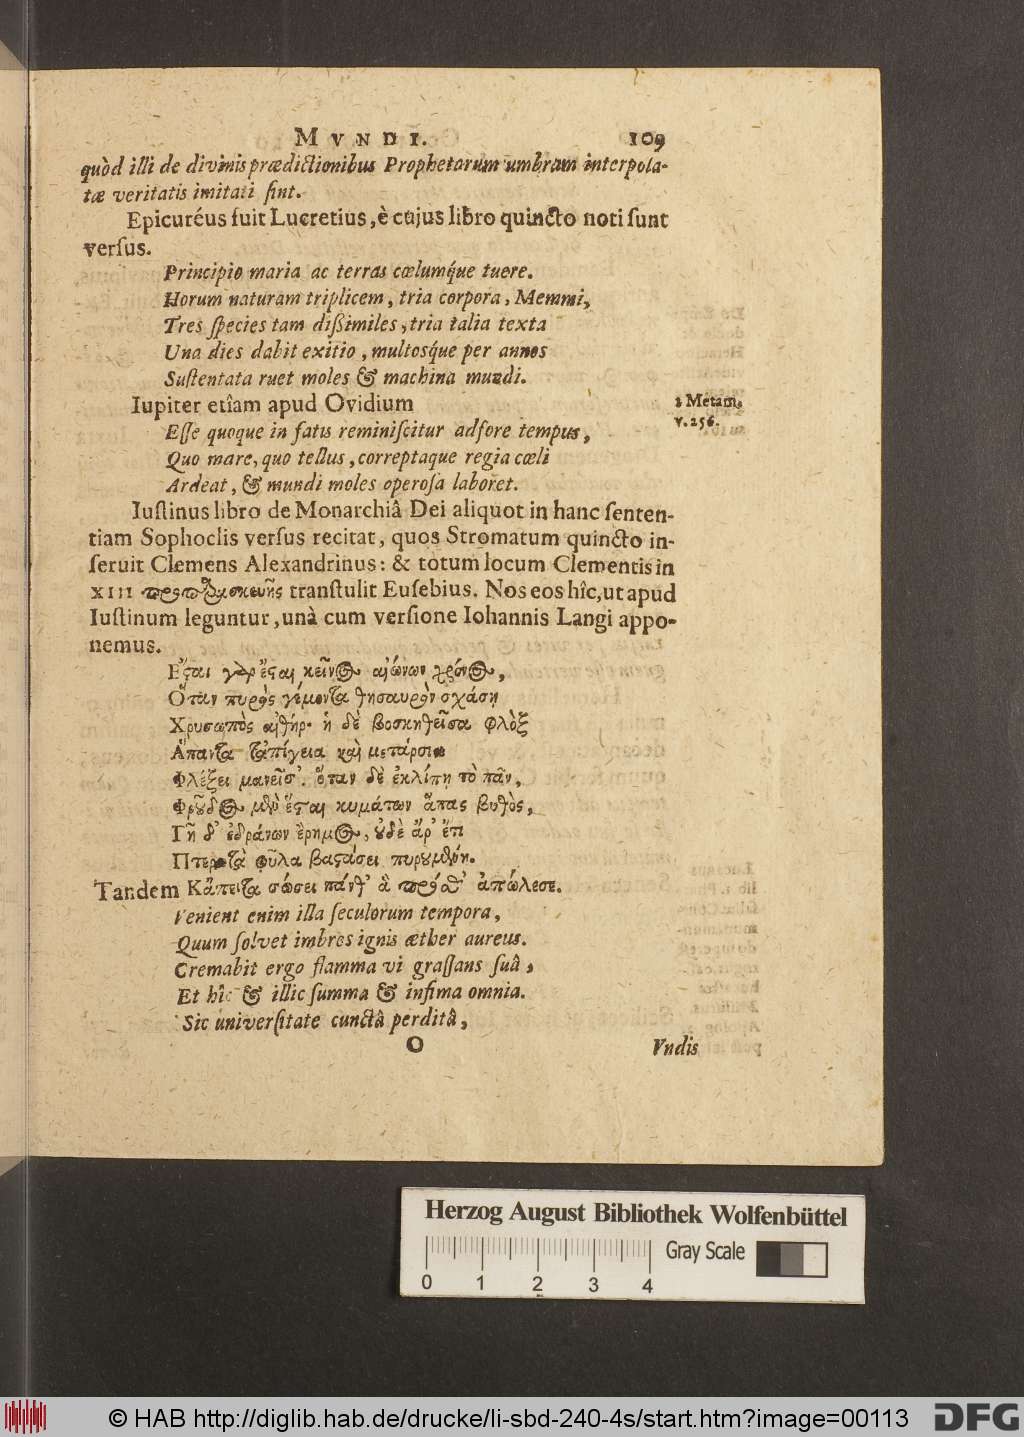 MVNDI. 109
quòd illi de divinis prædictionibus Prophetarum umbram interpola-
tæ veritatis imitati sint.
Epicuréus fuit Lucretius, è cujus libro quincto noti sunt
versus.
Principio maria ac terras cœlumq́ue tuere.
Horum naturam triplicem, tria corpora, Memmi,
Tres species tam dißimiles, tria talia texta
Una dies dabit exitio, multosq́ue per annos
Sustentata ruet moles & machina mundi.
Iupiter etîam apud Ovidium
1 Metam.
v. 256.
Esse quoque in fatis reminiscitur adfore tempus,
Quo mare, quo tellus, correptaque regia cœli
Ardeat, & mundi moles operosa laboret.
Iustinus libro de Monarchiâ Dei aliquot in hanc senten-
tiam Sophoclis versus recitat, quos Stromatum quincto in-
seruit Clemens Alexandrinus: & totum locum Clementis in
XIII προπαρασκευῆς transtulit Eusebius. Nos eos hîc, ut apud
Iustinum leguntur, unà cum versione Iohannis Langi appo-
nemus.
Ἔςαι γὰρ ἔςαι κεῖν㋛ αἰώνων χρόν㋛,
Ὅταν πυρὸς γέμοντα θησαυρὸν σχάσῃ
Χρυσωπὸς αἰθήρ· ἡ δὲ βοσκηθεῖσα φλὸξ
Ἅπαντα τἀπίγεια καὶ μετάρσια
Φλέξει μανεῖσ'. ὅταν δὲ ἐκλίπῃ τὸ πᾶν,
Φροῦδος μὲν ἔςαι κυμάτων ἅπας βυθὸς,
Γῆ δ' ἑδράνων ἔρημος, οὐδὲ ἄρ' ἔτι
Πτερωτὰ φῦλα βαςάσει πυρουμένη.
Tandem Κἄπειτα σώσει πάνθ' ἃ πρόσθ' ἀπώλεσε.
Venient enim illa seculorum tempora,
Quum solvet imbres ignis æther aureus.
Cremabit ergo flamma vi grassans suâ,
Et hîc & illic summa & infima omnia.
Sic universitate cunctâ perditâ,
O Vndis
Herzog August Bibliothek Wolfenbüttel
Gray Scale
0 1 2 3 4
© HAB http://diglib.hab.de/drucke/li-sbd-240-4s/start.htm?image=00113 DFG